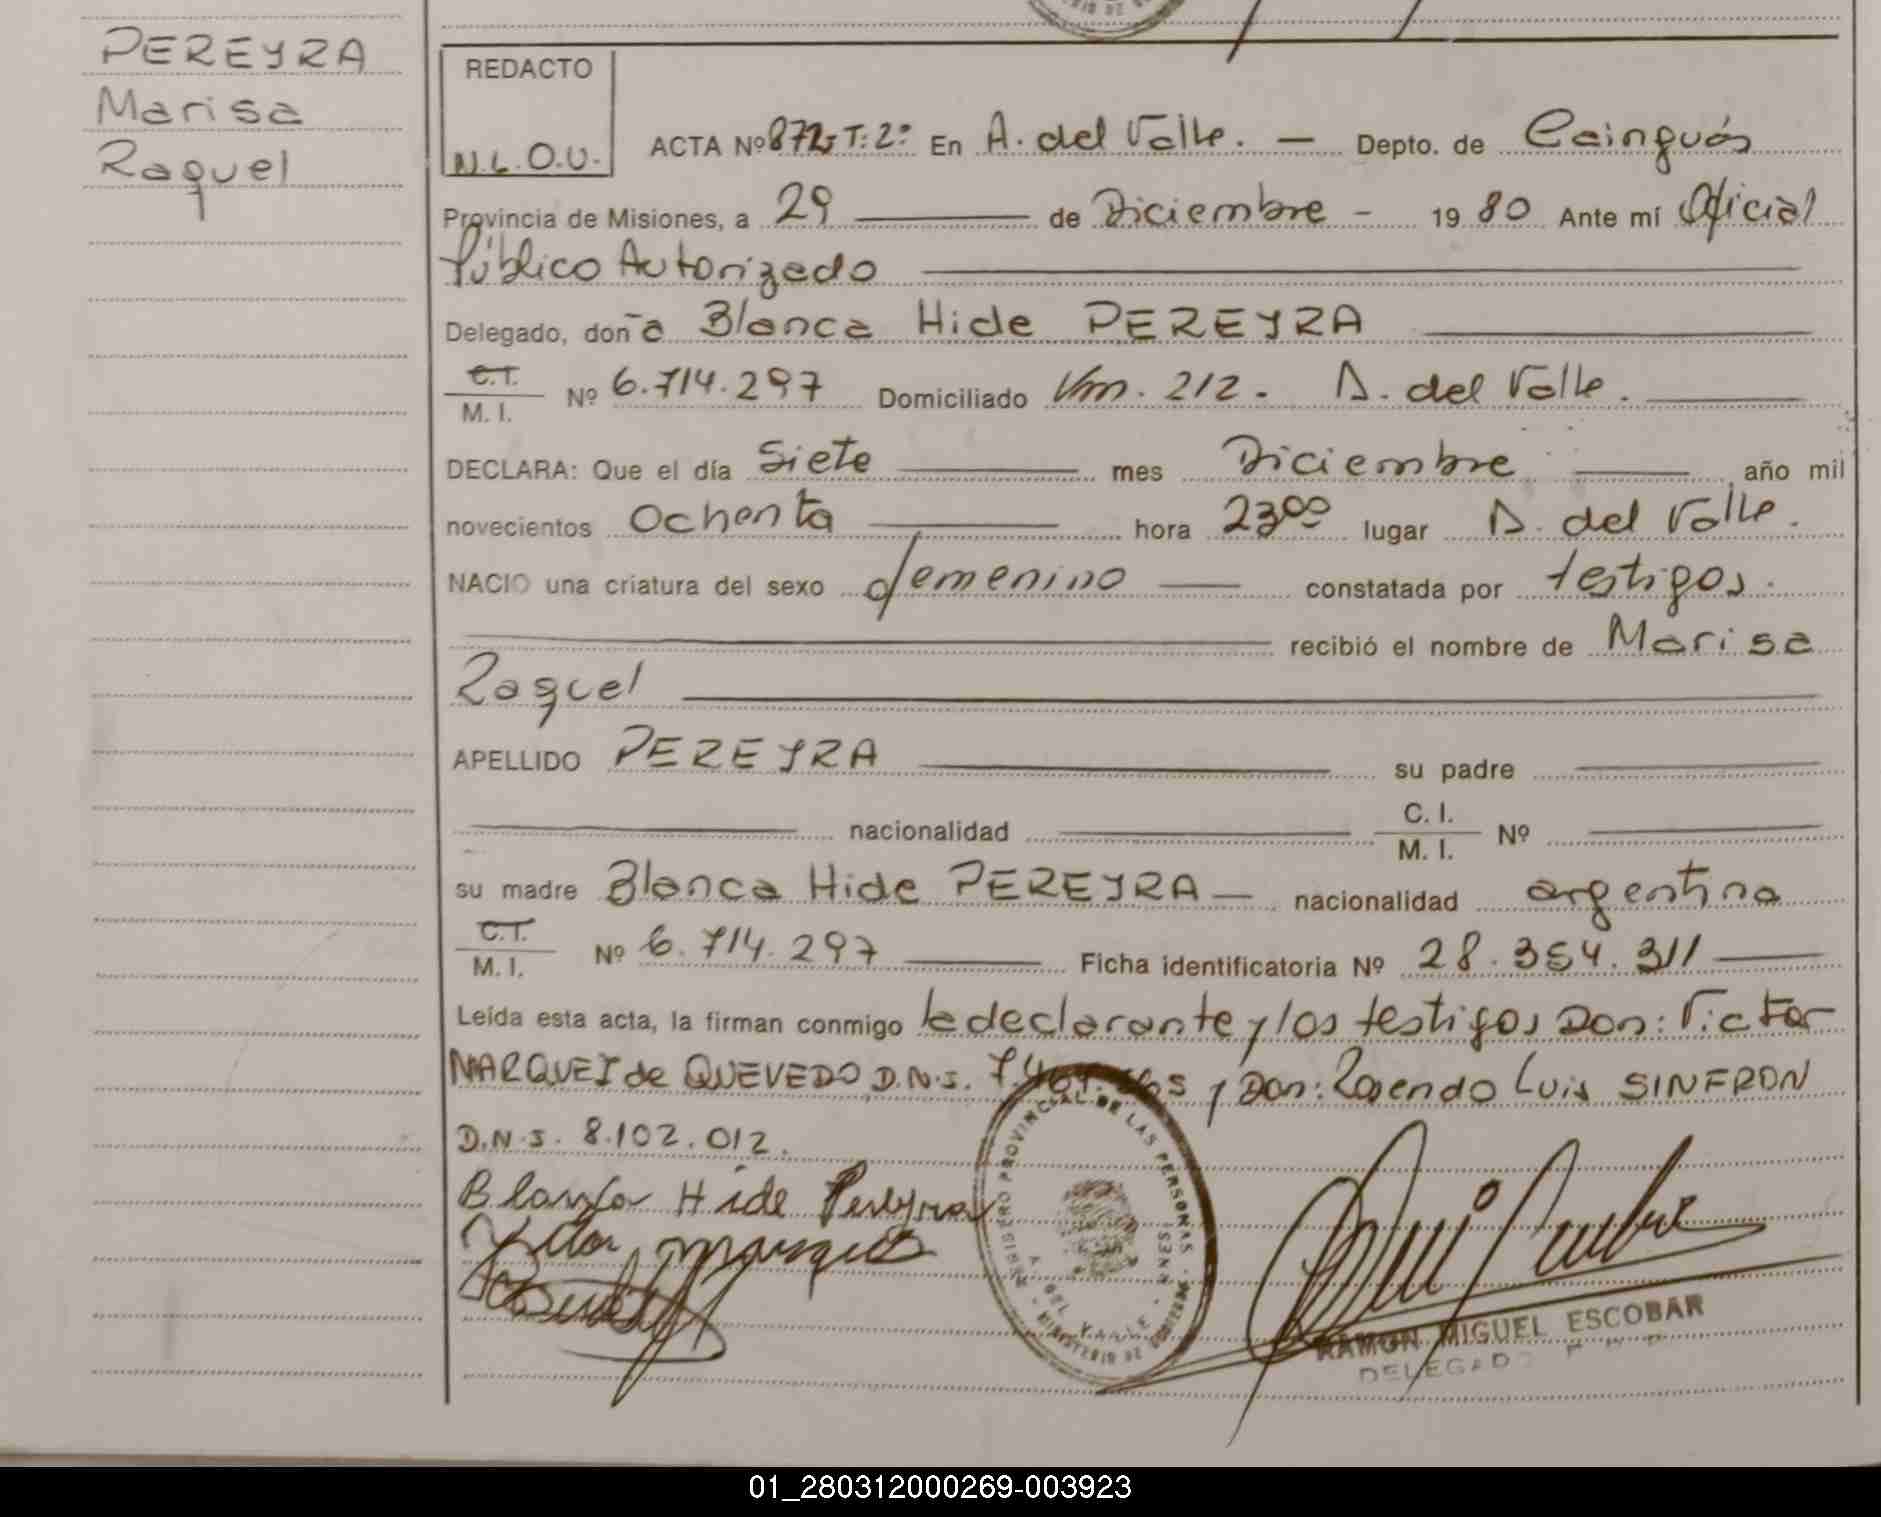 PEREYRA
Marisa
Raquel
REDACTO
N.L.O.U.
ACTA Nº 872 T: 2º En A. del Valle. — Depto. de Cainguás
Provincia de Misiones, a 29 de Diciembre - 1980 Ante mí Oficial
Público Autorizado
Delegado, don a Blanca Hide PEREYRA
C.I. M. I. Nº 6.714.297 Domiciliado Km. 212. A. del Valle.
DECLARA: Que el día Siete mes Diciembre año mil
novecientos Ochenta hora 23⁰⁰ lugar A. del Valle.
NACIO una criatura del sexo femenino constatada por testigos.
recibió el nombre de Marisa
Raquel
APELLIDO PEREYRA su padre
nacionalidad C. I. M. I. Nº
su madre Blanca Hide PEREYRA — nacionalidad argentina
C.I. M. I. Nº 6.714.297 Ficha identificatoria Nº 28.354.311
Leída esta acta, la firman conmigo la declarante y los testigos Don: Victor
MARQUEZ de QUEVEDO D.N.I. y Don: Rosendo Luis SINFRON
D.N.I. 8.102.012.
Blanca Hide Pereyra
REGISTRO PROVINCIAL DE LAS PERSONAS
A. DEL VALLE
MINISTERIO DE GOBIERNO
RAMON MIGUEL ESCOBAR
DELEGADO
01_280312000269-003923